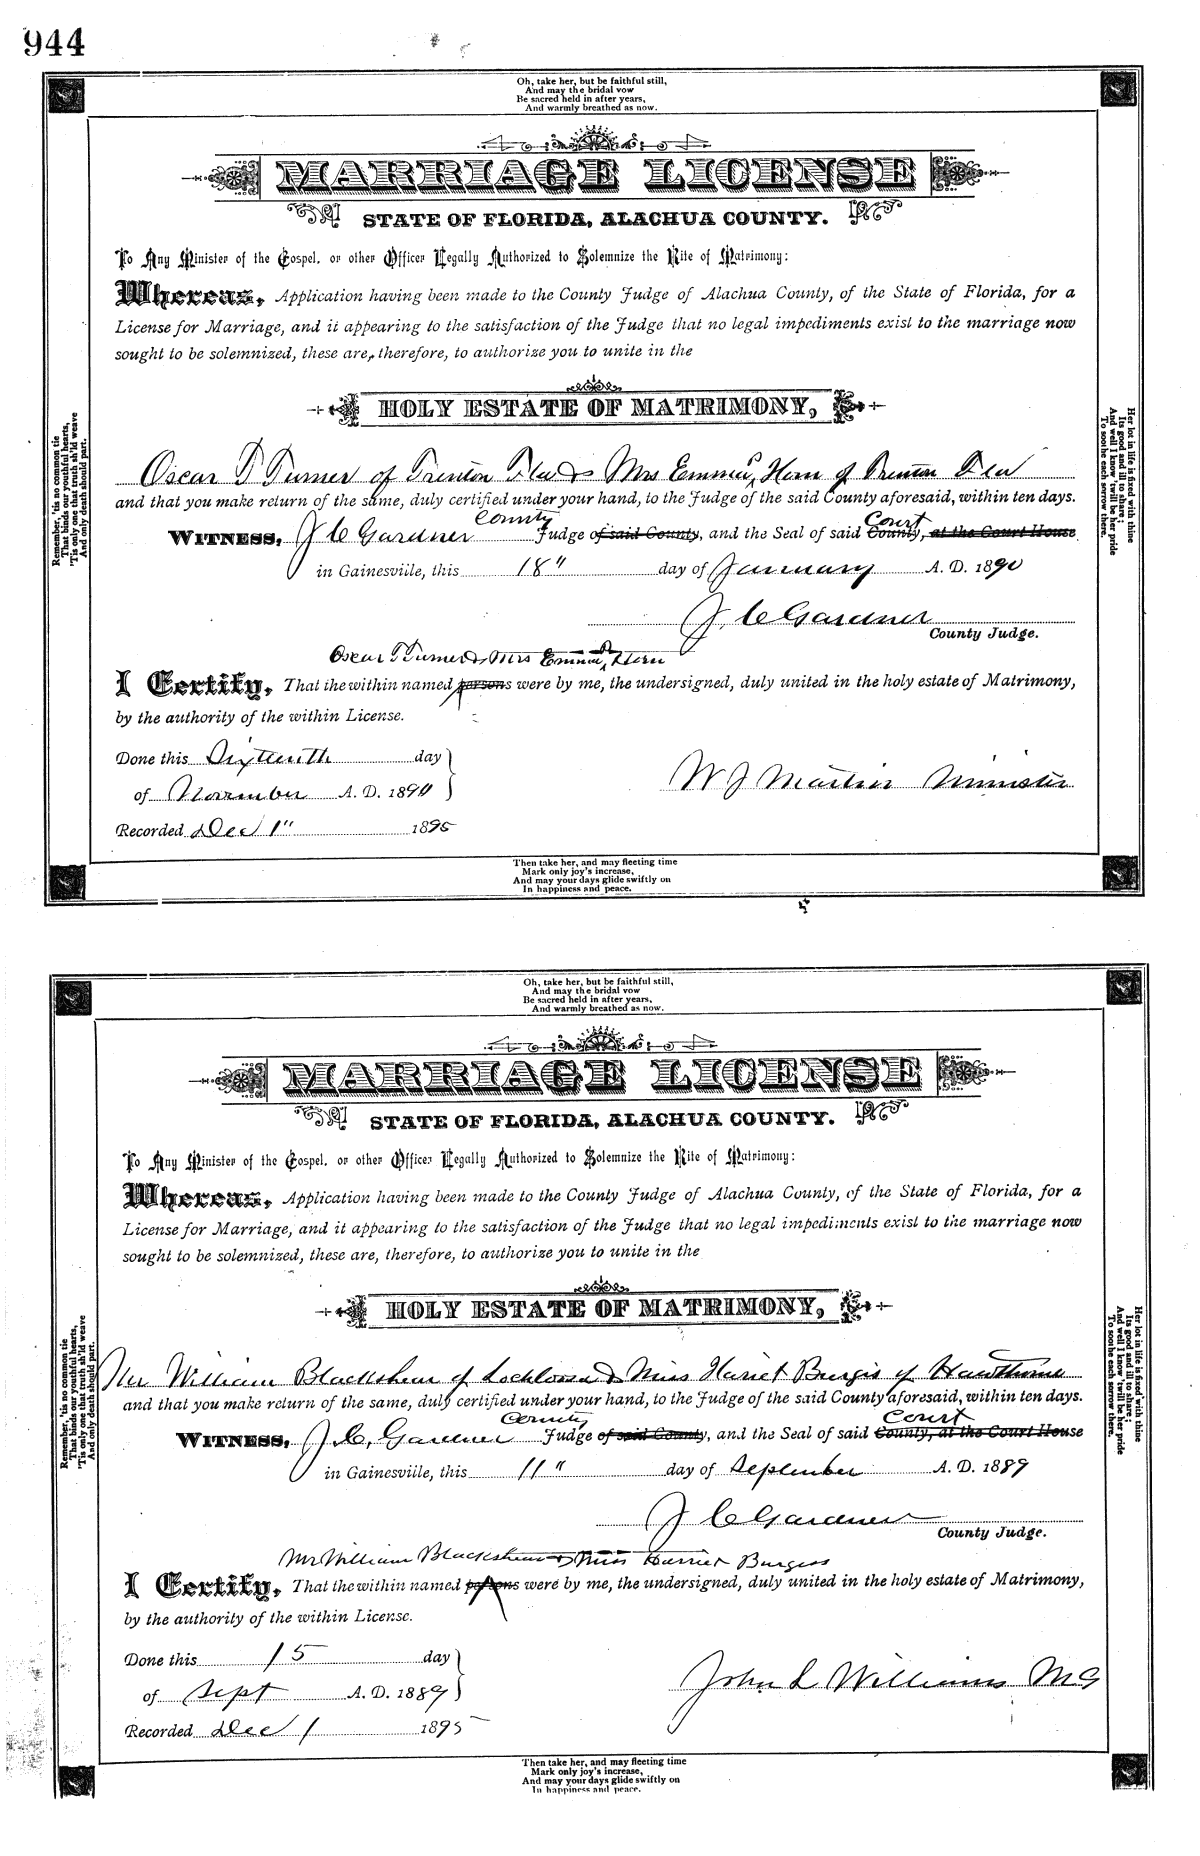 944
Oh, take her, but be faithful still,
And may the bridal vow
Be sacred held in after years,
And warmly breathed as now.
MARRIAGE LICENSE
STATE OF FLORIDA, ALACHUA COUNTY.
To Any Minister of the Gospel, or other Officer Legally Authorized to Solemnize the Rite of Matrimony:
Whereas, Application having been made to the County Judge of Alachua County, of the State of Florida, for a
License for Marriage, and it appearing to the satisfaction of the Judge that no legal impediments exist to the marriage now
sought to be solemnized, these are, therefore, to authorize you to unite in the
HOLY ESTATE OF MATRIMONY,
Oscar T Turner of Trenton Fla & Mrs Emma Horn of Trenton Fla
and that you make return of the same, duly certified under your hand, to the Judge of the said County aforesaid, within ten days.
County Court
WITNESS, J C Gardner Judge of said County, and the Seal of said County, at the Court House
in Gainesville, this 18" day of January A. D. 1890
J. C Gardner
County Judge.
Oscar T Turner & Mrs Emma Horn
I Certify, That the within named persons were by me, the undersigned, duly united in the holy estate of Matrimony,
by the authority of the within License.
Done this Sixteenth day
of November A. D. 1890
W J Martin Minister
Recorded Dec 1" 1895
Then take her, and may fleeting time
Mark only joy's increase,
And may your days glide swiftly on
In happiness and peace.
Remember, 'tis no common tie
That binds our youthful hearts,
'Tis only one that truth sh'ld weave
And only death should part.
Her lot in life is fixed with thine
Its good and ill to share;
And well I know 'twill be her pride
To soothe each sorrow there.
Oh, take her, but be faithful still,
And may the bridal vow
Be sacred held in after years,
And warmly breathed as now.
MARRIAGE LICENSE
STATE OF FLORIDA, ALACHUA COUNTY.
To Any Minister of the Gospel, or other Officer Legally Authorized to Solemnize the Rite of Matrimony:
Whereas, Application having been made to the County Judge of Alachua County, of the State of Florida, for a
License for Marriage, and it appearing to the satisfaction of the Judge that no legal impediments exist to the marriage now
sought to be solemnized, these are, therefore, to authorize you to unite in the
HOLY ESTATE OF MATRIMONY,
Mr William Blackshear of Lochloosa & Miss Hariet Burgis of Hawthorne
and that you make return of the same, duly certified under your hand, to the Judge of the said County aforesaid, within ten days.
County Court
WITNESS, J. C. Gardner Judge of said County, and the Seal of said County, at the Court House
in Gainesville, this 11" day of September A. D. 1889
J C Gardner
County Judge.
Mr William Blackshear & Miss Harriet Burgess
I Certify, That the within named persons were by me, the undersigned, duly united in the holy estate of Matrimony,
by the authority of the within License.
Done this 15 day
of Sept A. D. 1889
John L Williams M G
Recorded Dec 1 1895
Then take her, and may fleeting time
Mark only joy's increase,
And may your days glide swiftly on
In happiness and peace.
Remember, 'tis no common tie
That binds our youthful hearts,
'Tis only one that truth sh'ld weave
And only death should part.
Her lot in life is fixed with thine
Its good and ill to share;
And well I know 'twill be her pride
To soothe each sorrow there.